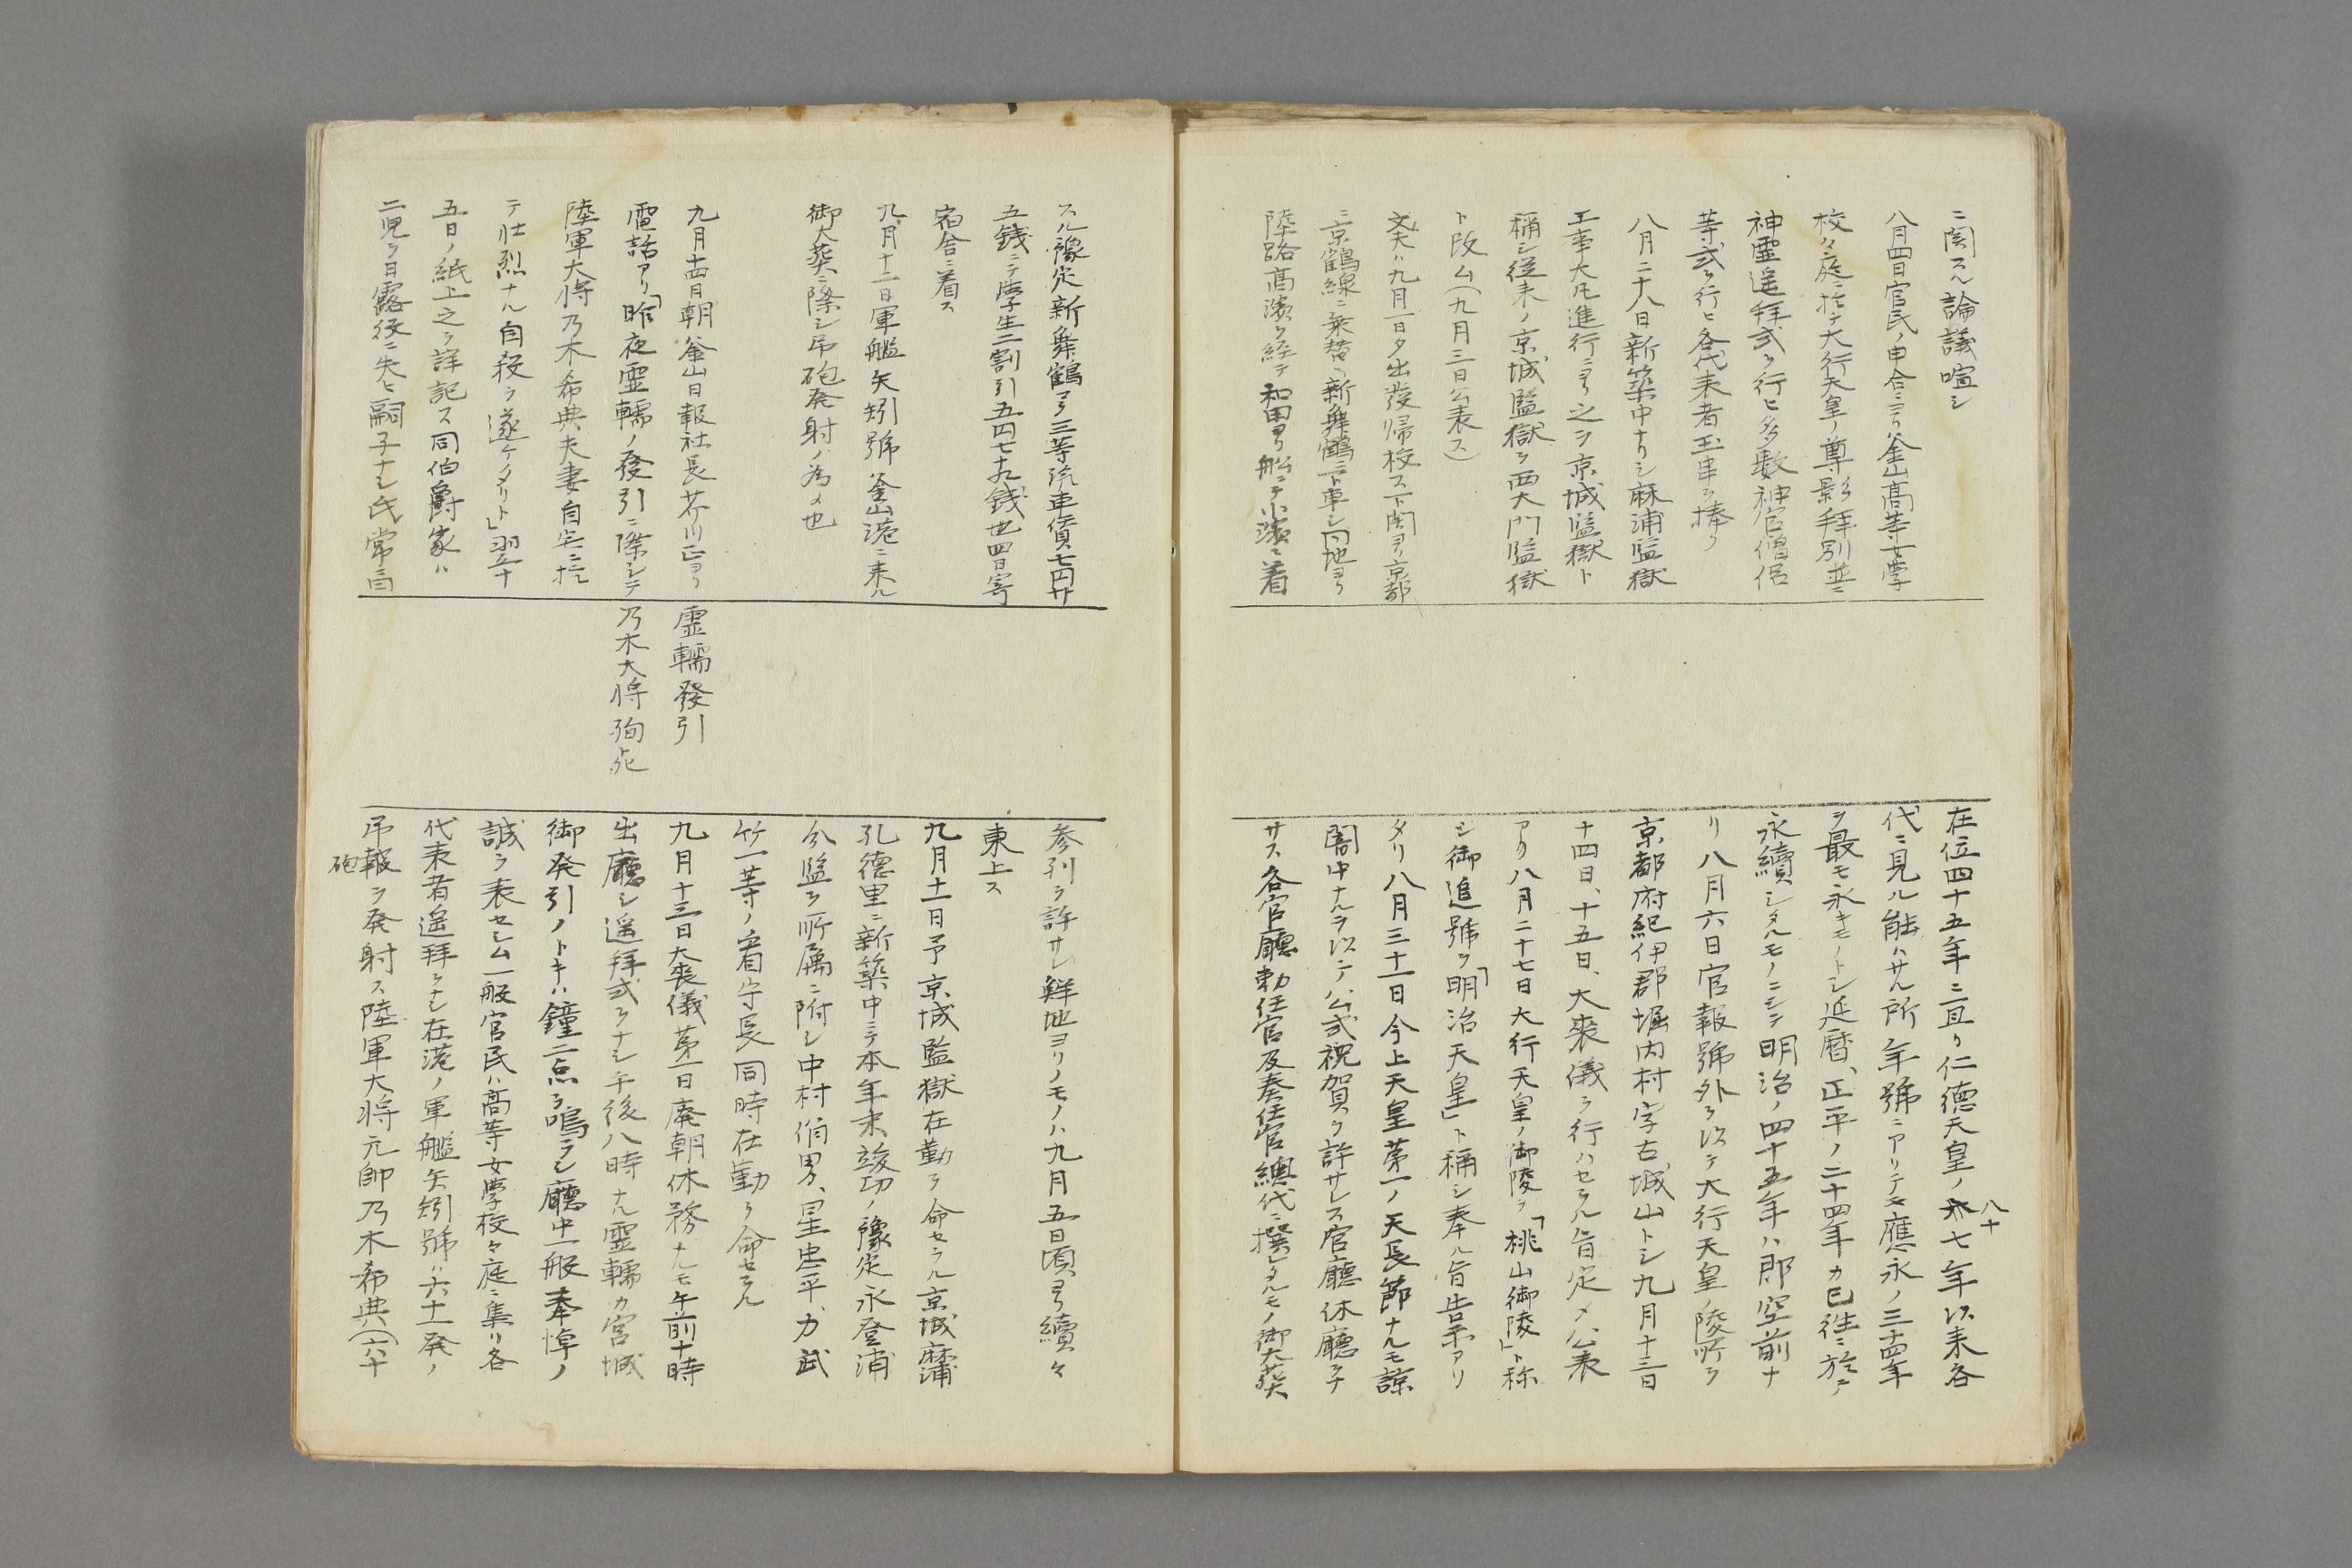 ニ関スル論議喧シ
八月四日官民ノ申合ニヨリ釜山高等女學
校々庭ニ於テ大行天皇ノ尊影拜別並ニ
神霊遥拜式ヲ行ヒ多數神官僧侶
等式ヲ行ヒ各代表者玉串ヲ捧ク
八月二十八日新築中ナリシ麻浦監獄
工事大凡進行ニヨリ之ヲ京城監獄ト
稱シ従来ノ京城監獄ヲ西大門監獄
ト改ム(九月三日公表ス)
癸ハ九月一日夕出發帰校ス下関ヨリ京都
ニ京鶴線ニ乗替ヘ新舞鶴ニ下車シ同地ヨリ
陸路高濱ヲ経テ和田ヨリ船ニテ小濱ニ着
在位四十五年ニ亘リ仁徳天皇ノ八十七年以来各
代ニ見ル能ハサル所年號ニアリテ應永ノ三十四年
ヲ最モ永キモノトシ延暦、正平ノ二十四年カ已往ニ於テ
永續シタルモノニシテ明治ノ四十五年ハ即空前ナ
リ八月六日官報號外ヲ以テ大行天皇ノ陵所ヲ
京都府紀伊郡堀内村字古城山トシ九月十三日
十四日、十五日、大喪儀ヲ行ハセラル旨定メ公表
アリ八月二十七日大行天皇ノ御陵ヲ「桃山御陵」ト称
シ御追號ヲ「明治天皇」ト稱シ奉ル旨告示アリ
タリ八月三十一日今上天皇第一ノ天長節ナルモ諒
闇中ナルヲ以テ公式祝賀ヲ許サレス官廳休廳ヲナ
サス各官廳勅任官及奏任官總代ニ撰レタルモノ御大葬
スル豫定新舞鶴ヨリ三等汽車賃七円廿
五銭ニテ學生二割引五円七十九銭也四日寄
宿舎ニ着ス
九月十二日軍艦矢矧號釜山港ニ来ル
御大葬ニ際シ弔砲発射ノ為メ也
九月十四日朝釜山日報社長芥川正ヨリ
電話アリ「昨夜霊轜ノ發引ニ際シテ
陸軍大将乃木希典夫妻自宅ニ於
テ壮烈ナル自殺ヲ遂ケタリト」翌十
五日ノ紙上之ヲ詳記ス同伯爵家ハ
二児ヲ日露役ニ失ヒ嗣子ナシ氏常ニ曰
霊轜發引
乃木大将殉死
参列ヲ許サレ鮮地ヨリノモノハ九月五日頃ヨリ續々
東上ス
九月十一日予京城監獄在勤ヲ命セラル京城麻浦
孔徳里ニ新築中ニテ本年末竣功ノ豫定永登浦
分監ヲ所属ニ附シ中村僴男、星忠平、力武
竹一等ノ看守長同時在勤ヲ命セラル
九月十三日大喪儀第一日廃朝休務ナルモ午前十時
出廳シ遥拜式ヲナシ午後八時ナル霊轜カ宮城
御発引ノトキハ鐘二点ヲ鳴ラシ廳中一般奉悼ノ
誠ヲ表セシム一般官民ハ高等女學校々庭ニ集リ各
代表者遥拜ヲナシ在港ノ軍艦矢矧號ハ六十一発ノ
弔報ヲ発射ス陸軍大将元帥乃木希典(六十
砲